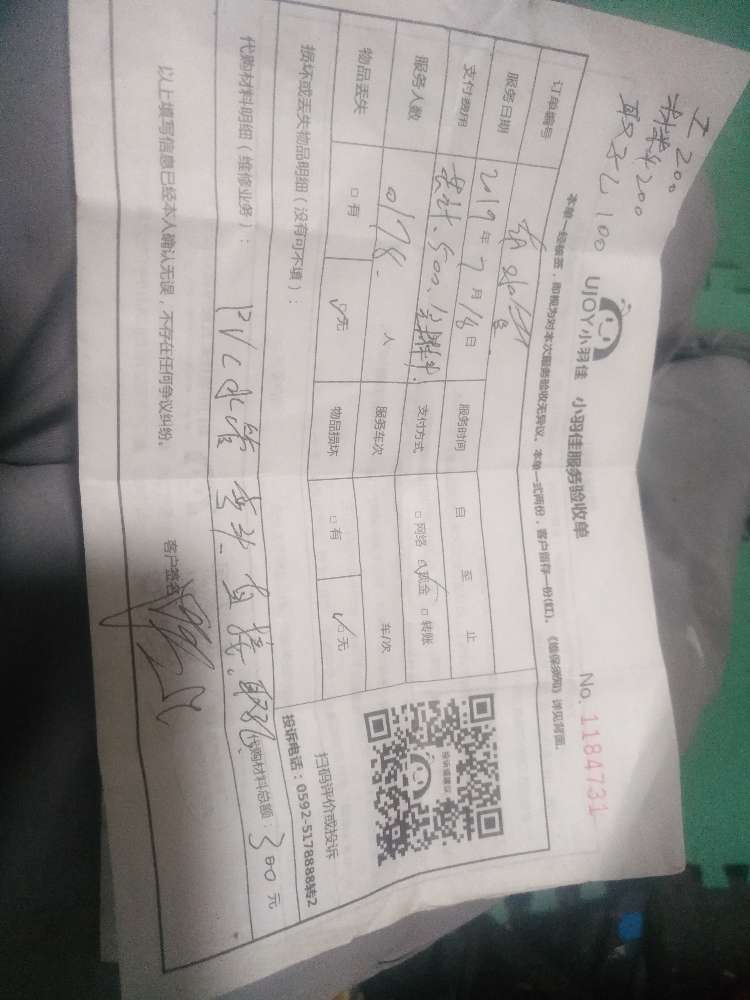 工 200
材料 200
取孔 100
UJOY小羽佳 小羽佳服务验收单
No. 1184731
本单一经填签，即视为对本次服务验收无异议。本单一式两份，客户留存一份(红)。《维保须知》详见背面。
订单编号
服务日期 2019 年 7 月 18 日 服务时间 自 至 止
支付费用 共计.500. 支付方式 □网络 ☑现金 □转账
服务人数 人 服务车次 车/次
物品丢失 □有 ☑无 物品损坏 □有 ☑无
损坏或丢失物品明细（没有可不填）：
代购材料明细（维修业务）： PVC水管 弯头 直接、取孔 代购材料总额：300 元
以上填写信息已经本人确认无误，不存在任何争议纠纷。 客户签名
扫码评价或投诉
投诉电话：0592-5178888转2